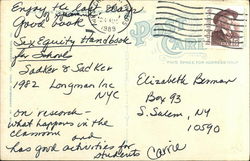 Enjoy the last days
Good book
Sex Equity Handbook
for Schools
Sadker & Sadker
1982 Longman Inc
NYC
on research -
what happens in the
classroom and
has good activities for
students
Carrie
Elizabeth Berman
Box 93
S. Salem, NY
10590